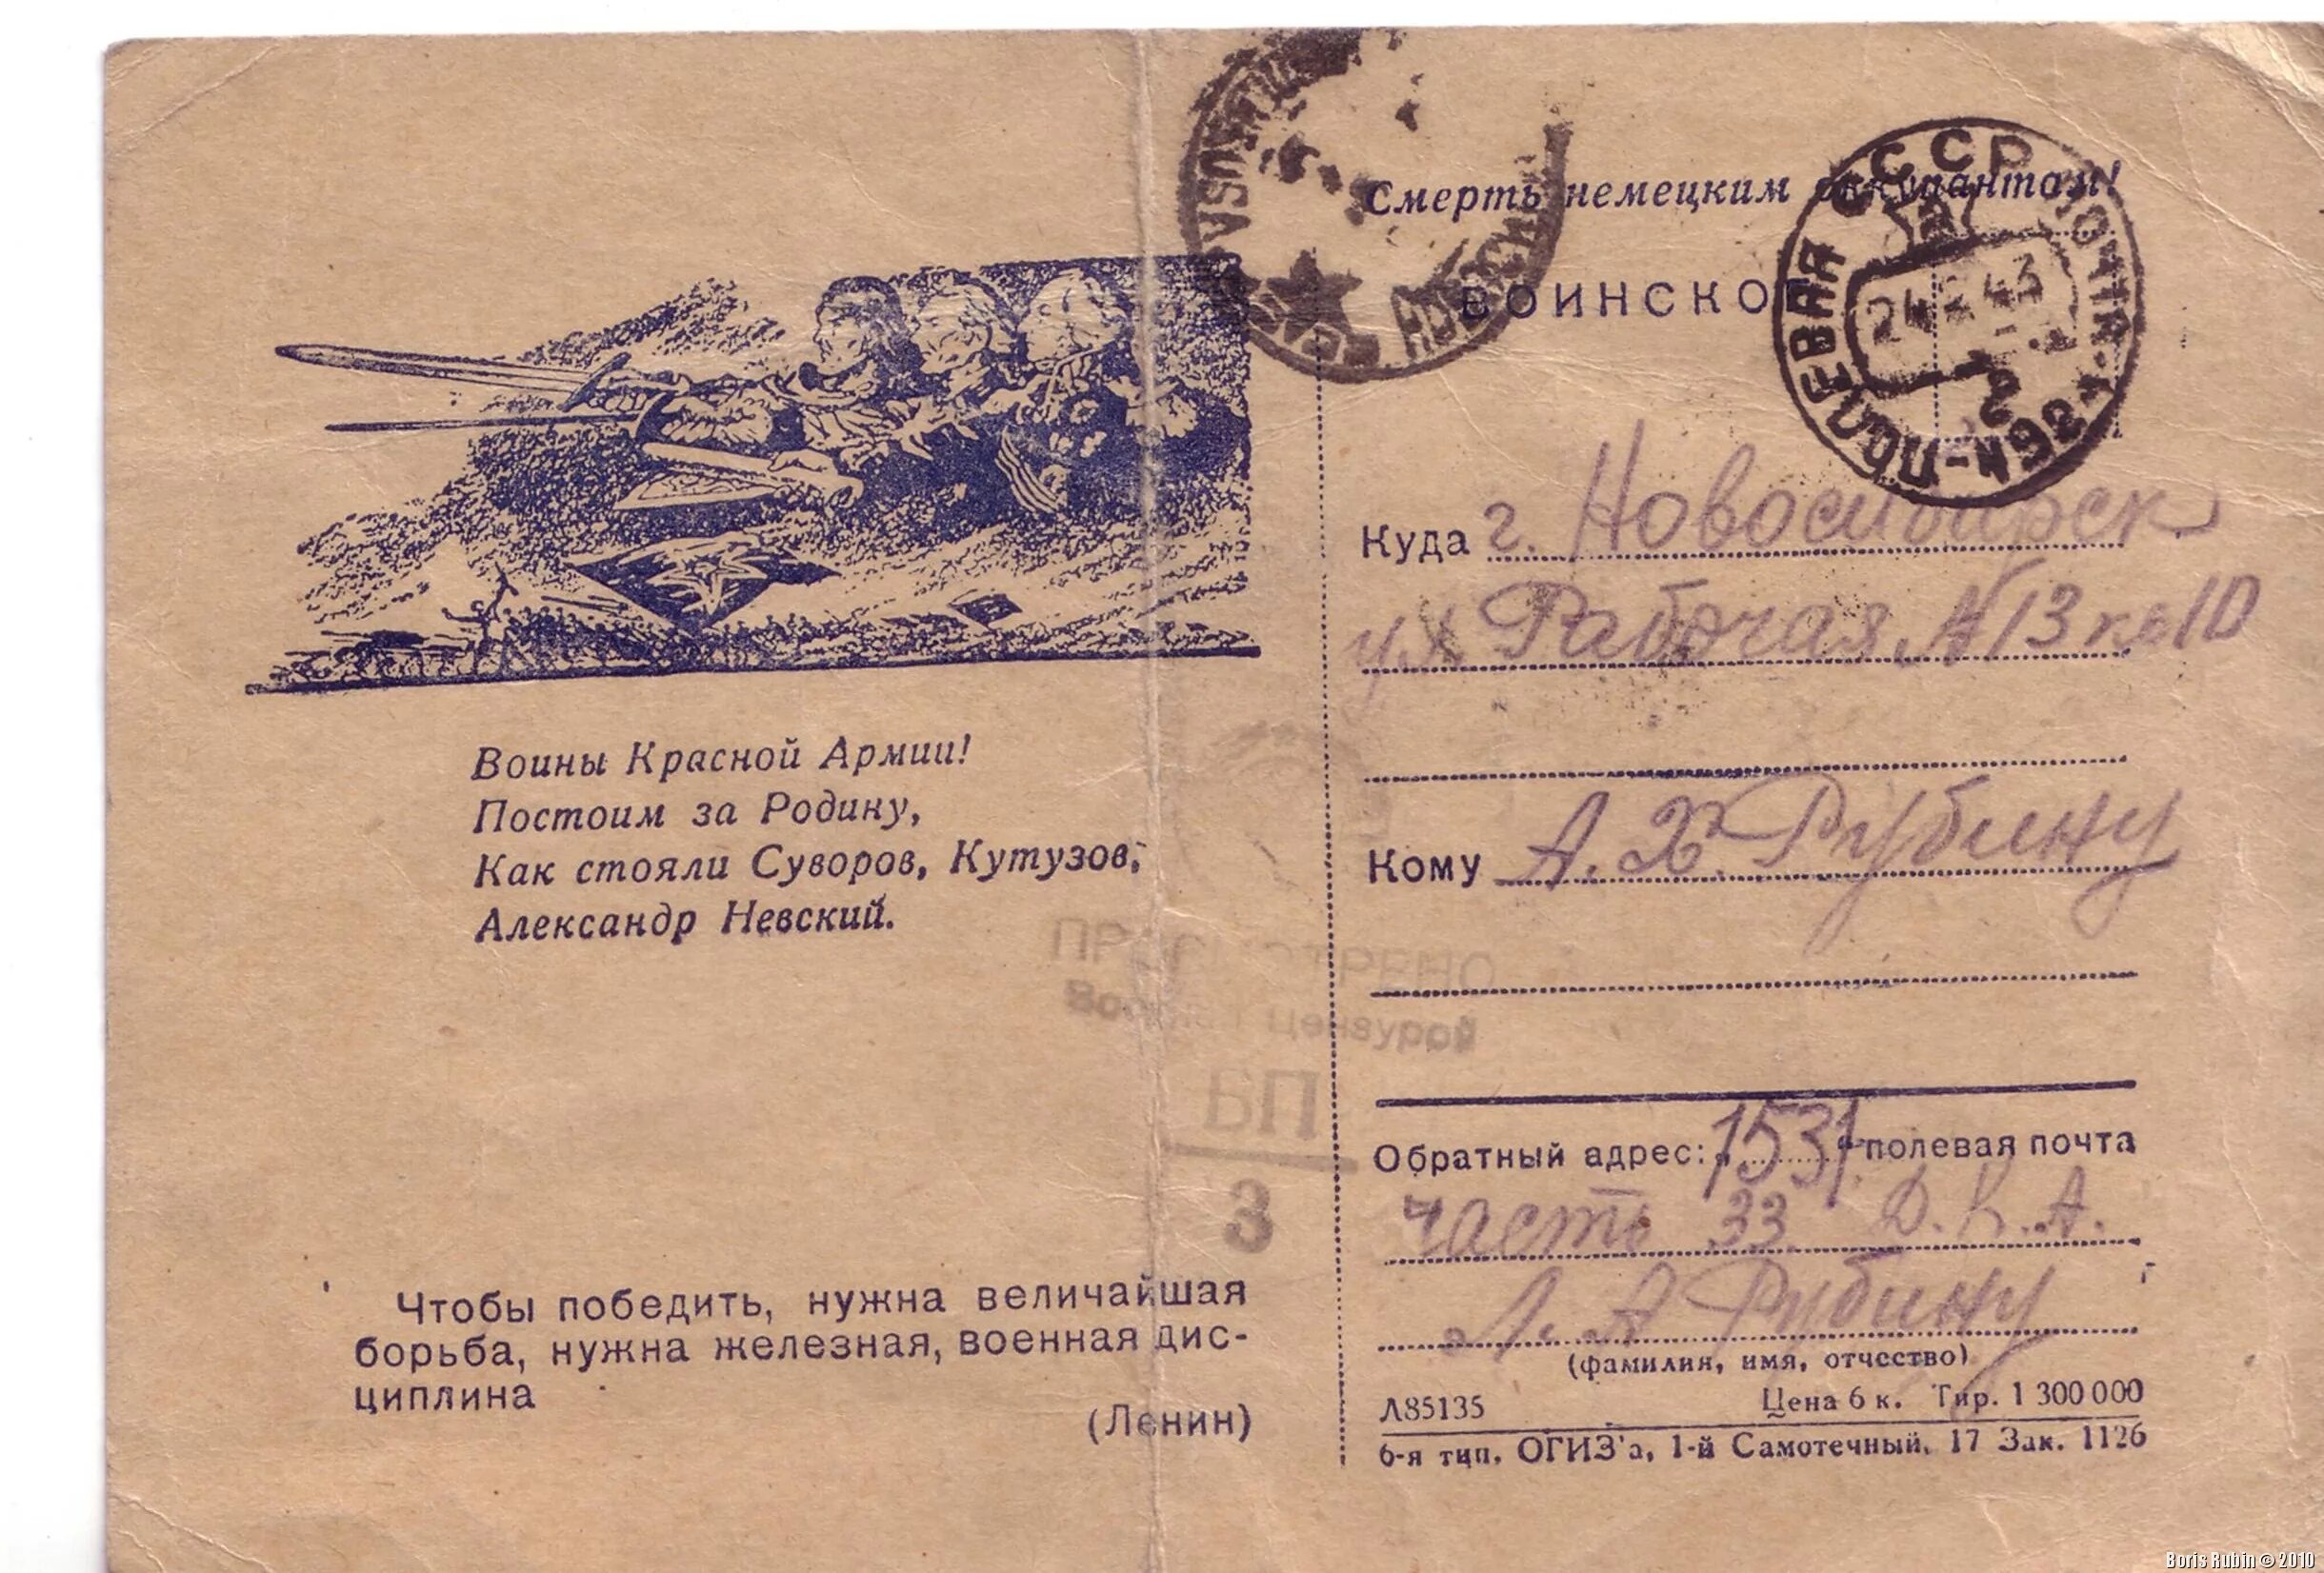 Смерть немецким оккупантам!
ВОИНСКОЕ
СССР
ПОЛЕВАЯ ПОЧТА
24 43
Воины Красной Армии!
Постоим за Родину,
Как стояли Суворов, Кутузов,
Александр Невский.
Чтобы победить, нужна величайшая
борьба, нужна железная, военная дис-
циплина
(Ленин)
ПРОСМОТРЕНО
Военной Цензурой
3
Куда г. Новосибирск
ул Рабочая № 13 кв 10
Кому А. Х. Рубину
Обратный адрес: 1531 полевая почта
часть 33 Д. К. А.
Л. А Рубину
(фамилия, имя, отчество)
Л85135 Цена 6 к. Тир. 1 300 000
6-я тип. ОГИЗ'а, 1-й Самотечный, 17 Зак. 1126
Boris Rubin © 2010